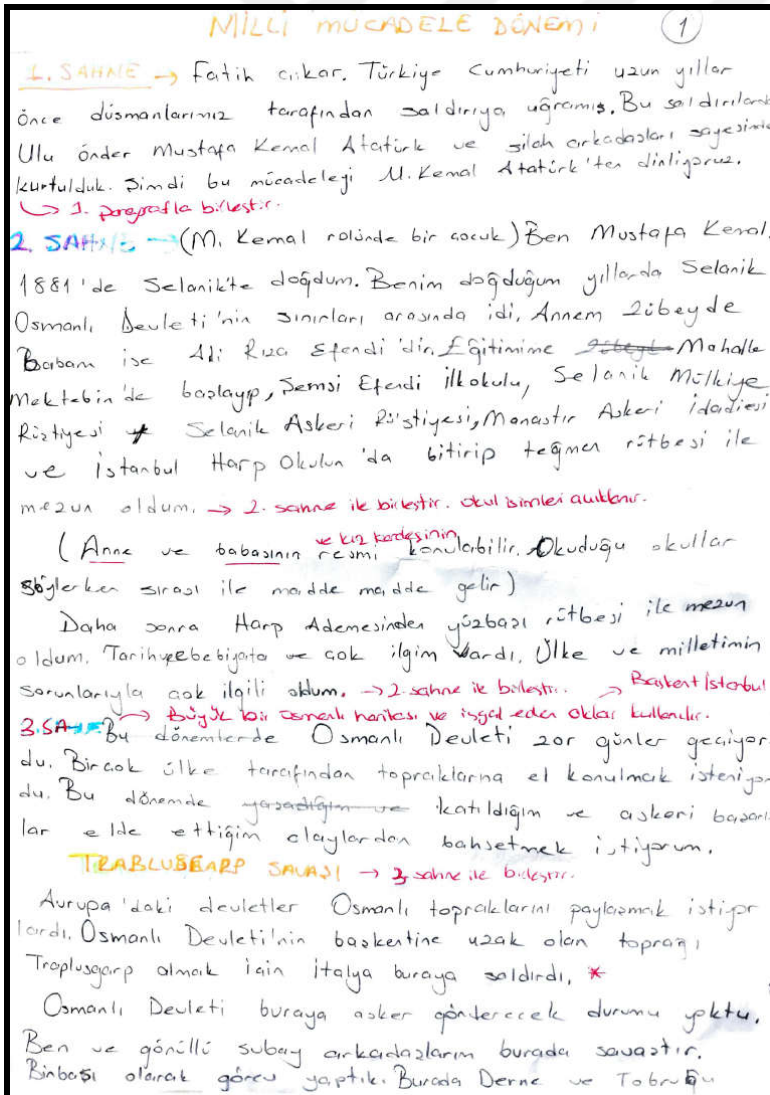 MİLLİ MÜCADELE DÖNEMİ 1
1. SAHNE → Fatih çıkar. Türkiye Cumhuriyeti uzun yıllar
önce düşmanlarımız tarafından saldırıya uğramış. Bu saldırılardan
Ulu önder Mustafa Kemal Atatürk ve silah arkadaşları sayesinde
kurtulduk. Şimdi bu mücadeleyi M. Kemal Atatürk'ten dinliyoruz.
↳ 1. paragrafla birleştir.
2. SAHNE → (M. Kemal rolünde bir çocuk) Ben Mustafa Kemal.
1881'de Selanik'te doğdum. Benim doğduğum yıllarda Selanik
Osmanlı Devleti'nin sınırları arasında idi. Annem Zübeyde
Babam ise Ali Rıza Efendi'dir. Eğitimime Mahalle
Mektebin'de başlayıp, Şemsi Efendi ilkokulu, Selanik Mülkiye
Rüştiyesi Selanik Askeri Rüştiyesi, Manastır Askeri idadiesi
ve İstanbul Harp Okulun'da bitirip teğmen rütbesi ile
mezun oldum. → 2. sahne ile birleştir. Okul isimleri açıklanır.
ve kız kardeşinin
(Anne ve babasının resmi konulabilir. Okuduğu okullar
söylerken sırası ile madde madde gelir)
Daha sonra Harp Ademesinden yüzbaşı rütbesi ile mezun
oldum. Tarih ve edebiyata ve çok ilgim vardı. Ülke ve milletimin
sorunlarıyla çok ilgili oldum. → 2. sahne ile birleştir. → Başkent İstanbul
3. SAHNE → Büyük bir osmanlı haritası ve işgal eden oklar kullanılır.
Bu dönemlerde Osmanlı Devleti zor günler geçiyor
du. Birçok ülke tarafından topraklarına el konulmak isteniyor
du. Bu dönemde yaşadığım ve katıldığım ve askeri başarı
lar elde ettiğim olaylardan bahsetmek istiyorum.
TRABLUSGARP SAVAŞI → 3. sahne ile birleştir.
Avrupa'daki devletler Osmanlı topraklarını paylaşmak istiyor
lardı. Osmanlı Devleti'nin başkentine uzak olan toprağı
Traplusgarp almak için İtalya buraya saldırdı. *
Osmanlı Devleti buraya asker gönderecek durumu yoktu.
Ben ve gönüllü subay arkadaşlarım burada savaştır.
Binbaşı olarak görev yaptık. Burada Derne ve Tobruğu